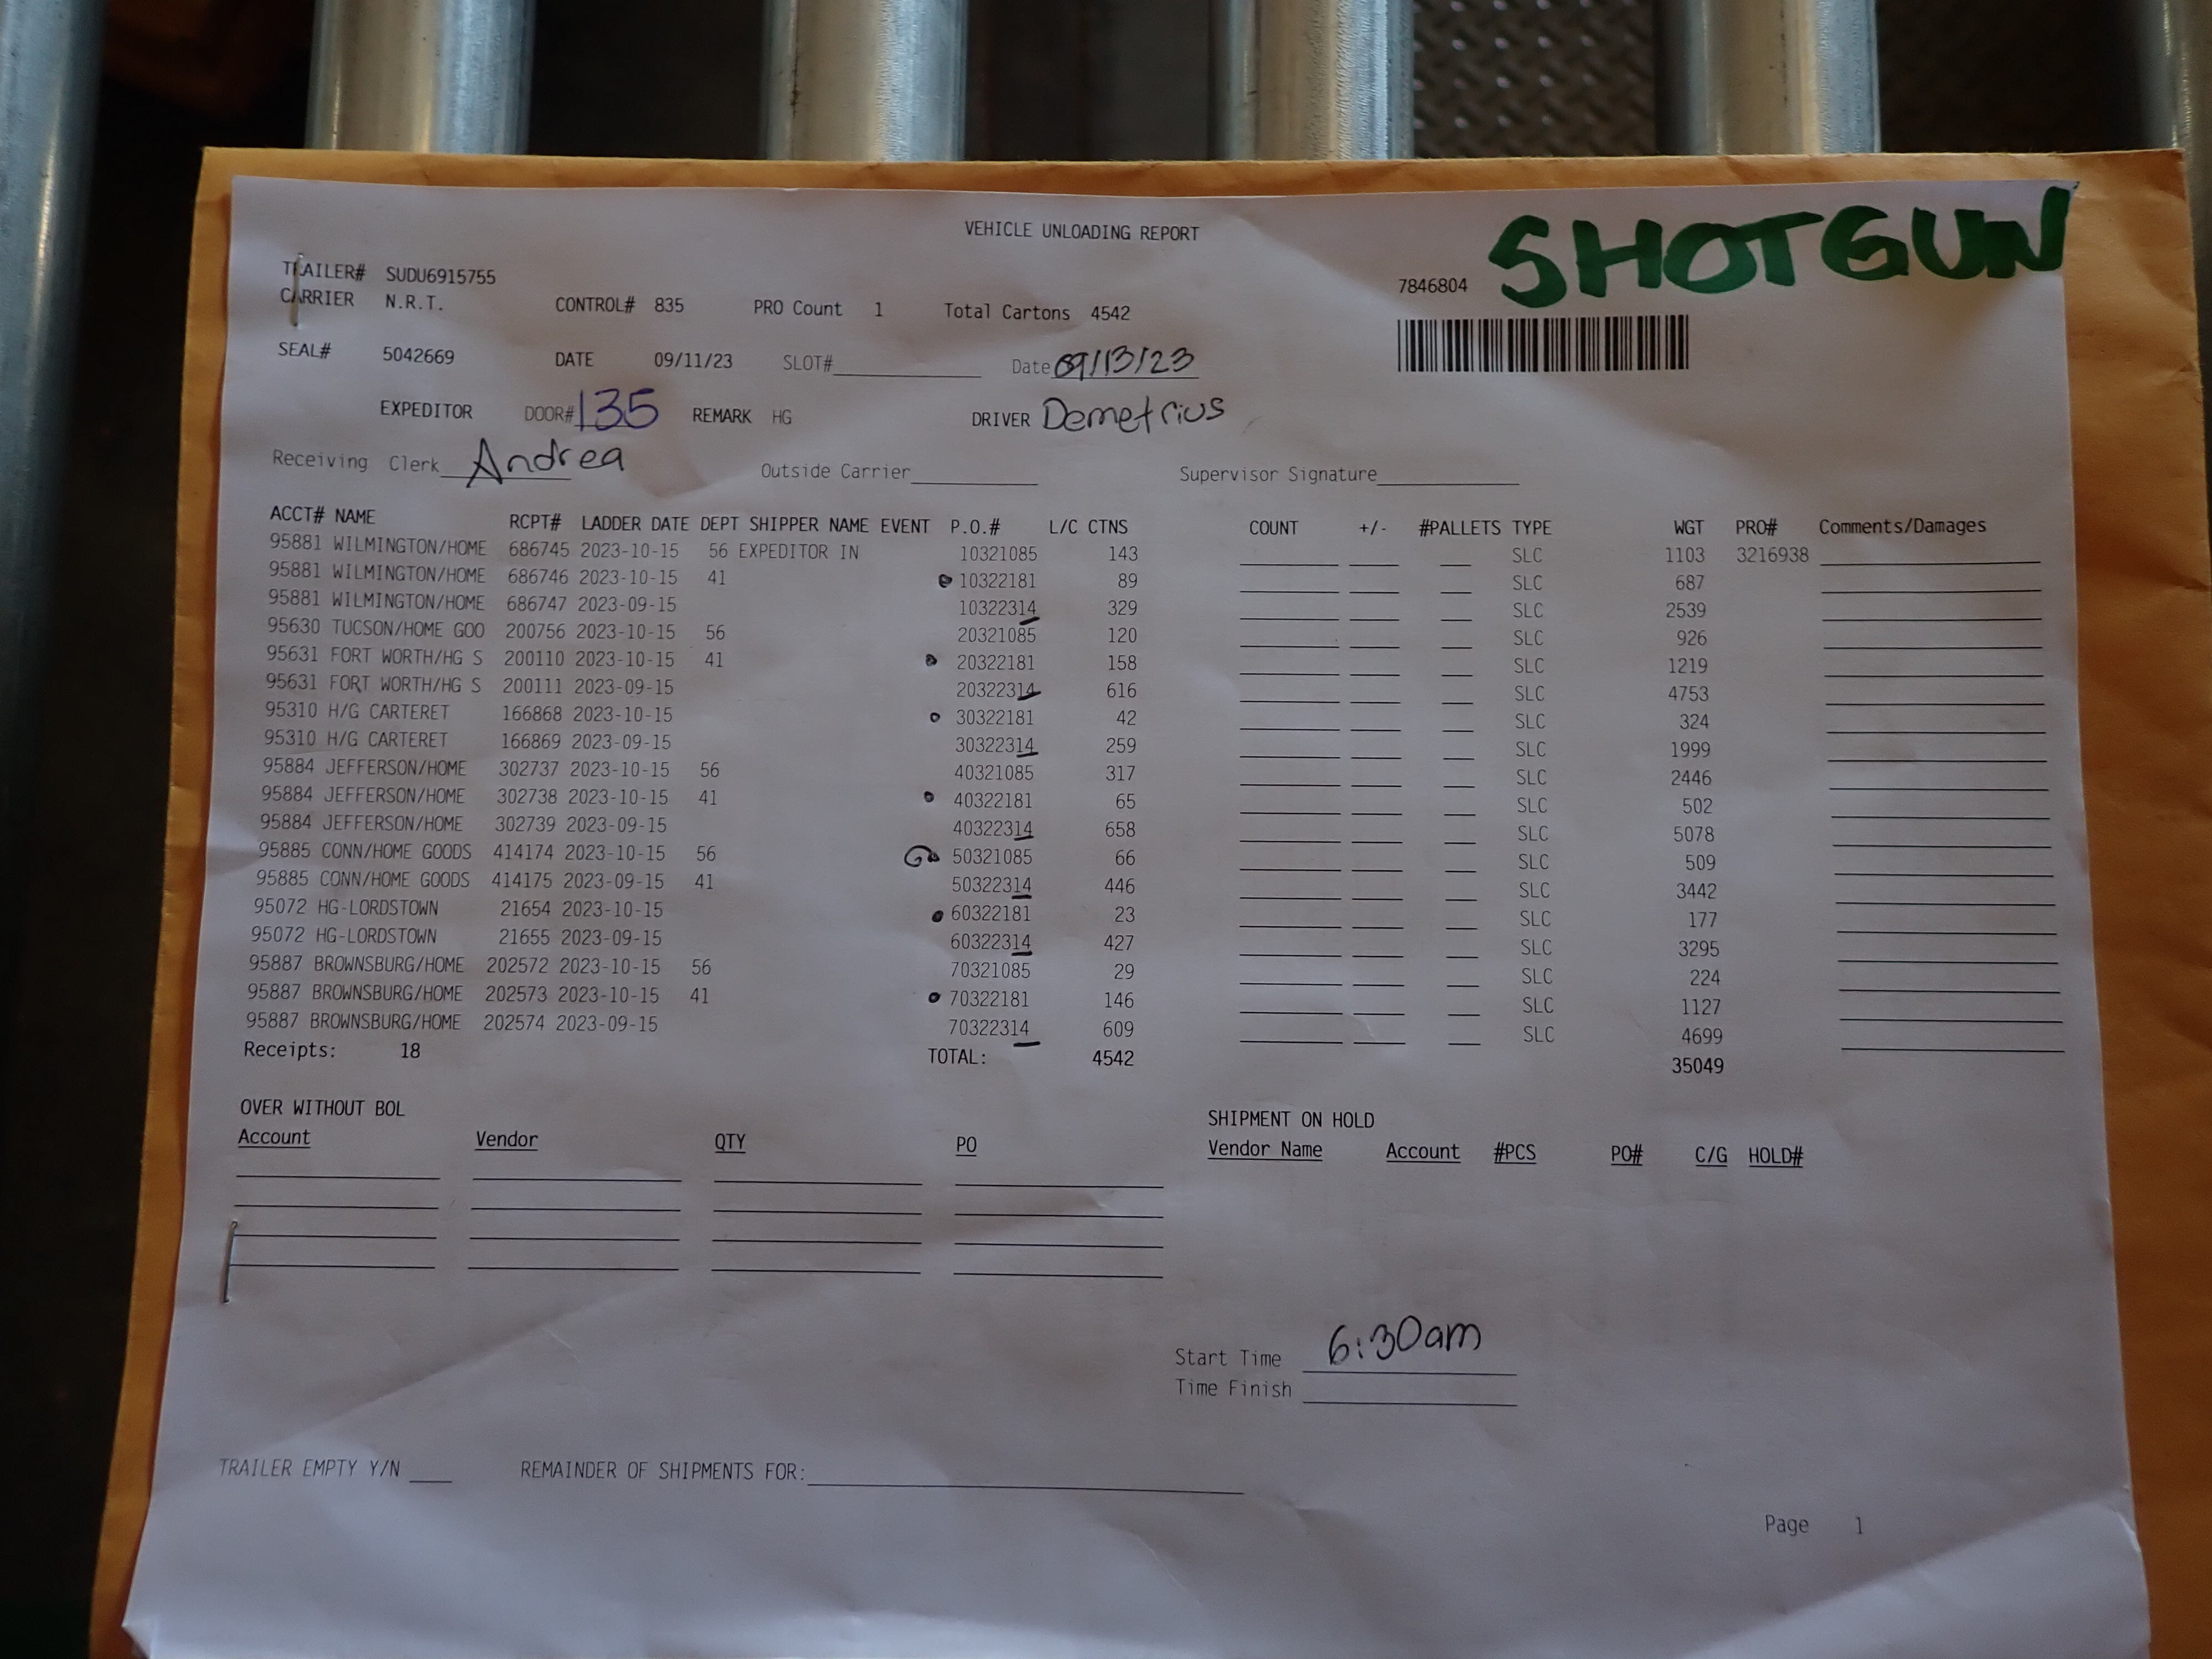 VEHICLE UNLOADING REPORT
SHOTGUN
TRAILER# SUDU6915755
7846804
CARRIER N.R.T. CONTROL# 835 PRO Count 1 Total Cartons 4542
SEAL# 5042669 DATE 09/11/23 SLOT# Date 09/13/23
EXPEDITOR DOOR# 135 REMARK HG DRIVER Demetrius
Receiving Clerk Andrea Outside Carrier Supervisor Signature
ACCT# NAME RCPT# LADDER DATE DEPT SHIPPER NAME EVENT P.O.# L/C CTNS COUNT +/- #PALLETS TYPE WGT PRO# Comments/Damages
95881 WILMINGTON/HOME 686745 2023-10-15 56 EXPEDITOR IN 10321085 143 SLC 1103 3216938
95881 WILMINGTON/HOME 686746 2023-10-15 41 10322181 89 SLC 687
95881 WILMINGTON/HOME 686747 2023-09-15 10322314 329 SLC 2539
95630 TUCSON/HOME GOO 200756 2023-10-15 56 20321085 120 SLC 926
95631 FORT WORTH/HG S 200110 2023-10-15 41 20322181 158 SLC 1219
95631 FORT WORTH/HG S 200111 2023-09-15 20322314 616 SLC 4753
95310 H/G CARTERET 166868 2023-10-15 30322181 42 SLC 324
95310 H/G CARTERET 166869 2023-09-15 30322314 259 SLC 1999
95884 JEFFERSON/HOME 302737 2023-10-15 56 40321085 317 SLC 2446
95884 JEFFERSON/HOME 302738 2023-10-15 41 40322181 65 SLC 502
95884 JEFFERSON/HOME 302739 2023-09-15 40322314 658 SLC 5078
95885 CONN/HOME GOODS 414174 2023-10-15 56 50321085 66 SLC 509
95885 CONN/HOME GOODS 414175 2023-09-15 41 50322314 446 SLC 3442
95072 HG-LORDSTOWN 21654 2023-10-15 60322181 23 SLC 177
95072 HG-LORDSTOWN 21655 2023-09-15 60322314 427 SLC 3295
95887 BROWNSBURG/HOME 202572 2023-10-15 56 70321085 29 SLC 224
95887 BROWNSBURG/HOME 202573 2023-10-15 41 70322181 146 SLC 1127
95887 BROWNSBURG/HOME 202574 2023-09-15 70322314 609 SLC 4699
Receipts: 18 TOTAL: 4542 35049
OVER WITHOUT BOL SHIPMENT ON HOLD
Account Vendor QTY PO Vendor Name Account #PCS PO# C/G HOLD#
Start Time 6:30am
Time Finish
TRAILER EMPTY Y/N REMAINDER OF SHIPMENTS FOR:
Page 1